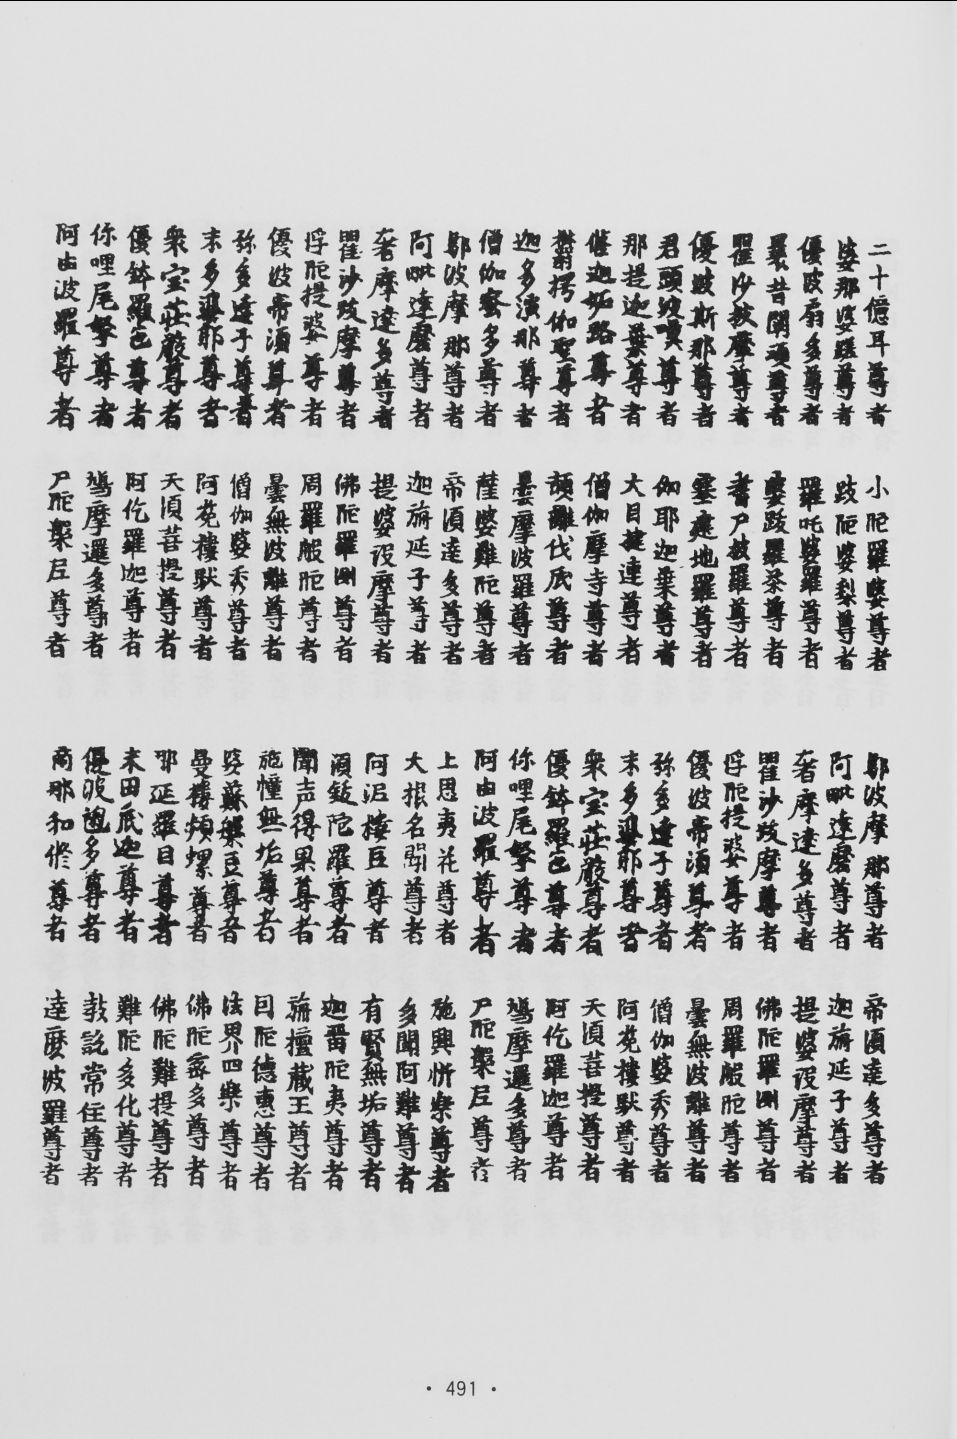 二十億耳尊者
婆那婆蹉尊者
優波扇多尊者
尊者
瞿沙
摩尊者
優波斯那尊者
君頭波嘆尊者
那提迦葉尊者
尊者
伽聖尊者
迦多演那尊者
僧伽蜜多尊者
鄔波摩那尊者
阿毗達磨尊者
奢摩達多尊者
瞿沙跋摩尊者
浮陀提婆尊者
優波帝須尊者
弥多達子尊者
末多
耶尊者
衆宝荘厳尊者
優鉢羅色尊者
你哩尾拏尊者
阿由波羅尊者
小陀羅婆尊者
跋陀婆梨尊者
羅吒婆羅尊者
跋羅荼尊者
尸披羅尊者
地羅尊者
伽耶迦葉尊者
大目揵連尊者
僧伽摩寺尊者
頞
伐
尊者
曇摩波羅尊者
薩婆難陀尊者
帝須達多尊者
迦旃延子尊者
提婆设摩尊者
佛陀羅測尊者
周羅般陀尊者
曇無波離尊者
僧伽婆秀尊者
阿菟樓駄尊者
天須菩提尊者
阿仡羅迦尊者
鳩摩邏多尊者
尸陀槃丘尊者
鄔波摩那尊者
阿毗達磨尊者
奢摩達多尊者
瞿沙跋摩尊者
浮陀提婆尊者
優波帝須尊者
弥多達子尊者
末多
耶尊者
衆宝荘厳尊者
優鉢羅色尊者
你哩尾拏尊者
阿由波羅尊者
上思夷花尊者
大根名聞尊者
阿泥樓豆尊者
須鈸陀羅尊者
聞声得果尊者
施幢無垢尊者
婆蘇槃豆尊者
曼樓頻螺尊者
耶延羅目尊者
末田底迦尊者
優波毱多尊者
商那和修尊者
帝須達多尊者
迦旃延子尊者
提婆设摩尊者
佛陀羅測尊者
周羅般陀尊者
曇無波離尊者
僧伽婆秀尊者
阿菟樓駄尊者
天須菩提尊者
阿仡羅迦尊者
鳩摩邏多尊者
尸陀槃丘尊者
施興忻樂尊者
多聞阿難尊者
有賢無垢尊者
迦留陀夷尊者
旃檀蔵王尊者
因陀德惠尊者
法界四樂尊者
佛陀蜜多尊者
佛陀難提尊者
難陀多化尊者
敎説常住尊者
達麼波羅尊者
・491・